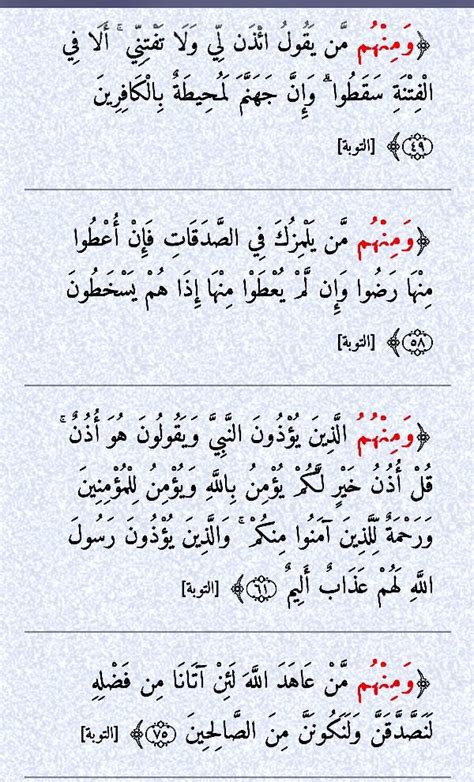 ﴿وَمِنْهُم مَّن يَقُولُ ائْذَن لِّي وَلَا تَفْتِنِّي ۚ أَلَا فِي
الْفِتْنَةِ سَقَطُوا ۗ وَإِنَّ جَهَنَّمَ لَمُحِيطَةٌ بِالْكَافِرِينَ
﴿٤٩﴾ [التوبة]
﴿وَمِنْهُم مَّن يَلْمِزُكَ فِي الصَّدَقَاتِ فَإِنْ أُعْطُوا
مِنْهَا رَضُوا وَإِن لَّمْ يُعْطَوْا مِنْهَا إِذَا هُمْ يَسْخَطُونَ
﴿٥٨﴾ [التوبة]
﴿وَمِنْهُمُ الَّذِينَ يُؤْذُونَ النَّبِيَّ وَيَقُولُونَ هُوَ أُذُنٌ ۚ
قُلْ أُذُنُ خَيْرٍ لَّكُمْ يُؤْمِنُ بِاللَّهِ وَيُؤْمِنُ لِلْمُؤْمِنِينَ
وَرَحْمَةٌ لِّلَّذِينَ آمَنُوا مِنكُمْ ۚ وَالَّذِينَ يُؤْذُونَ رَسُولَ
اللَّهِ لَهُمْ عَذَابٌ أَلِيمٌ ﴿٦١﴾ [التوبة]
﴿وَمِنْهُم مَّنْ عَاهَدَ اللَّهَ لَئِنْ آتَانَا مِن فَضْلِهِ
لَنَصَّدَّقَنَّ وَلَنَكُونَنَّ مِنَ الصَّالِحِينَ ﴿٧٥﴾ [التوبة]